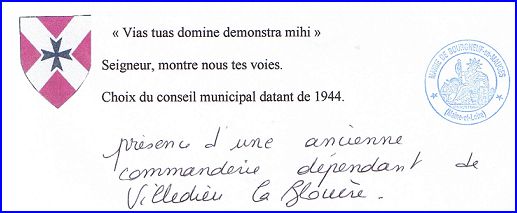 « Vias tuas domine demonstra mihi »
Seigneur, montre nous tes voies.
Choix du conseil municipal datant de 1944.
MAIRIE DE BOURGNEUF-en-MAUGES
(Maine-et-Loire)
présence d'une ancienne
commanderie dépendant de
Villedieu la Blouère.